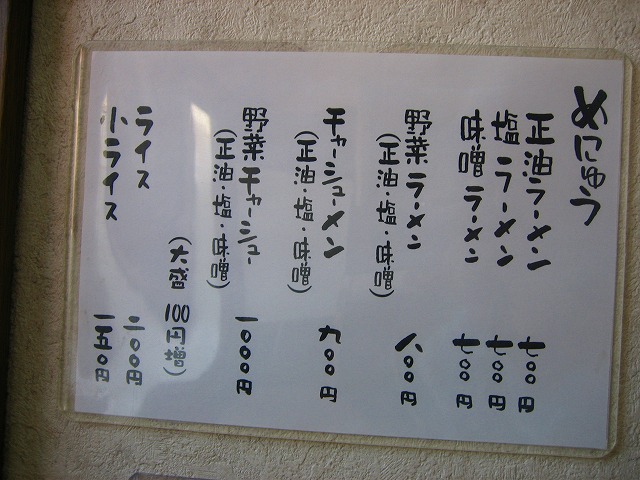 めにゅう
正油ラーメン 七〇〇円
塩ラーメン 七〇〇円
味噌ラーメン 七〇〇円
野菜ラーメン 八〇〇円
(正油・塩・味噌)
チャーシューメン 九〇〇円
(正油・塩・味噌)
野菜チャーシュー 一〇〇〇円
(正油・塩・味噌)
(大盛 100円増)
ライス 二〇〇円
小ライス 一五〇円